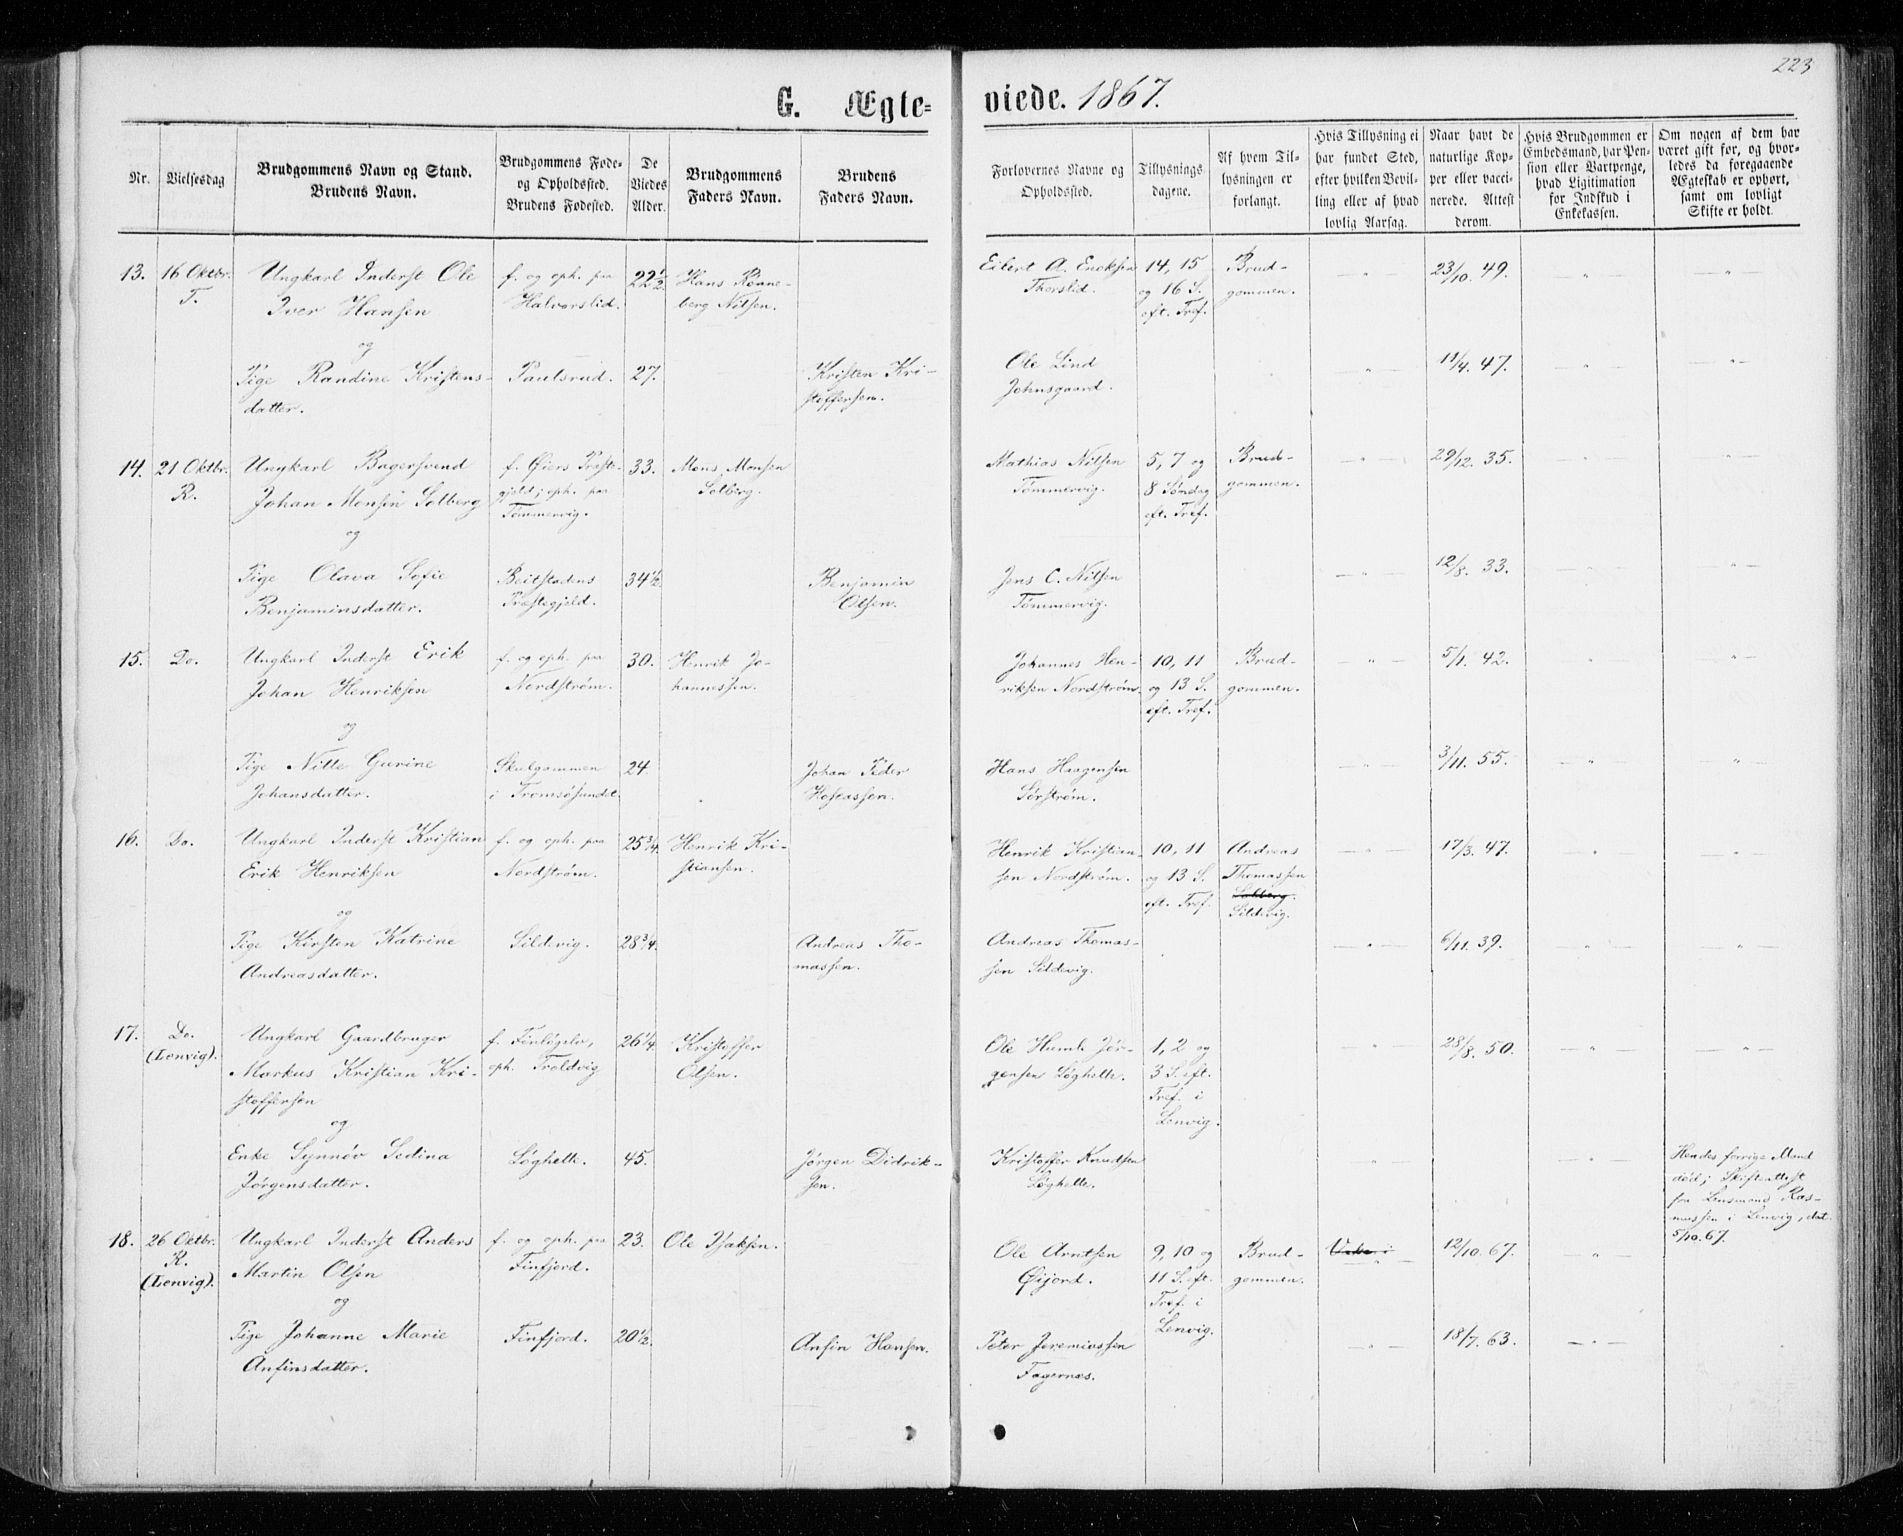 223
G. Ægte=
viede. 1867.
Nr.
Vielsesdag
Brudgommens Navn og Stand.
Brudens Navn.
Brudgommens Føde-
og Opholdssted.
Brudens Fødested.
De
Viedes
Alder.
Brudgommens
Faders Navn.
Brudens
Faders Navn.
Forlovernes Navne og
Opholdssted.
Tillysnings-
dagene.
Af hvem Til-
lysningen er
forlangt.
Hvis Tillysning ei
har fundet Sted,
efter hvilken Bevil-
ling eller af hvad
lovlig Aarsag.
Naar havt de
naturlige Kop-
per eller vacci-
nerede. Attest
derom.
Hvis Brudgommen er
Embedsmand, har Pen-
sion eller Vartpenge,
hvad Ligitimation
for Indskud i
Enkekassen.
Om nogen af dem har
været gift for, og hvor-
ledes da foregaaende
Ægteskab er ophørt,
samt om lovligt
Skifte er holdt.
13.
16 Oktbr.
T.
Ungkarl Inderst Ole
Iver Hansen
og
Pige Randine Kristens-
datter.
f. og oph. paa
Halvorslid.
Paulsrud.
22½
27.
Hans Rønne-
berg Nilsen.
Kristen Kri-
stoffersen.
Eilert A. Enoksen
Thorslid.
Ole Lind
Johnsgaard.
14, 15
og 16 S.
eft. Tref.
Brud-
gommen.
23/10. 49.
11/4. 47.
14.
21 Oktbr.
R.
Ungkarl Bagersvend
Johan Monsen Solberg
og
Pige Olava Sofie
Benjaminsdatter.
f. Øiers Præste-
gjeld; oph. paa
Tømmervig.
Beitstadens
Præstegjeld.
33.
34½
Mons Monsen
Solberg.
Benjamin
Olsen.
Mathias Nilsen
Tømmervig.
Jens C. Nilsen
Tømmervig.
5, 7 og
8 Søndag
eft. Tref.
Brud-
gommen.
29/12. 35.
12/8. 33.
15.
Do.
Ungkarl Inderst Erik
Johan Henriksen
og
Pige Nille Gurine
Johansdatter.
f. og oph. paa
Nordstrøm.
Skulgammen
i Tromsøsundet.
30.
24.
Henrik Jo-
hannessen.
Johan Peder
Hoseassen.
Johannes Hen-
riksen Nordstrøm.
Hans Haagensen
Sørstrøm.
10, 11
og 13 S.
eft. Tref.
Brud-
gommen.
5/1. 42.
3/11. 55.
16.
Do.
Ungkarl Inderst Kristian
Erik Henriksen
og
Pige Kirsten Katrine
Andreasdatter.
f. og oph. paa
Nordstrøm.
Sildevig.
25¾.
28¾.
Henrik Kri-
stiansen.
Andreas Tho-
massen.
Henrik Kristian-
sen Nordstrøm.
Andreas Thomas-
sen Sildevig.
10, 11
og 13 S.
eft. Tref.
Andreas
Thomassen
Sildevig.
17/3. 47.
6/11. 39.
17.
Do.
(Lenvig).
Ungkarl Gaardbruger
Markus Kristian Kri-
stoffersen
og
Enke Synnøv Sedina
Jørgensdatter.
f. Finligelv,
oph. Troldvig
Løghelle.
26¼.
45.
Kristoffer
Olsen.
Jørgen Didrik-
sen.
Ole Humle Jør-
gensen Løghelle.
Kristoffer Knudsen
Løghelle.
1, 2 og
3 S. eft.
Tref. i
Lenvig.
28/8. 50.
Hendes forrige Mand
død; Skifteattest
fra Lensmand Ras-
mussen i Lenvig, dat.
5/10. 67.
18.
26 Oktbr.
R.
(Lenvig).
Ungkarl Inderst Anders
Martin Olsen
og
Pige Johanne Marie
Anfinsdatter.
f. og oph. paa
Finfjord.
Finfjord.
23.
20½.
Ole Isaksen.
Anfin Hansen.
Ole Arntsen
Øijord.
Peter Jeremiassen
Fagernæs.
9, 10 og
11 S. eft.
Tref. i
Lenvig.
Brud-
gommen.
12/10. 67.
18/7. 63.